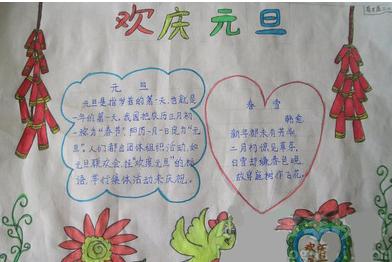 欢庆元旦
元旦
元旦是指岁首的第一天,也就是
一年的第一天,我国把农历正月初
一称为“春节”,把阳历一月一日定为“元
旦”。人们都会团体组织活动,如
元旦联欢会,挂“欢度元旦”的标
语,举行集体活动来庆祝。
春雪
韩愈
新年都未有芳华,
二月初惊见草芽。
白雪却嫌春色晚,
故穿庭树作飞花。
欢庆